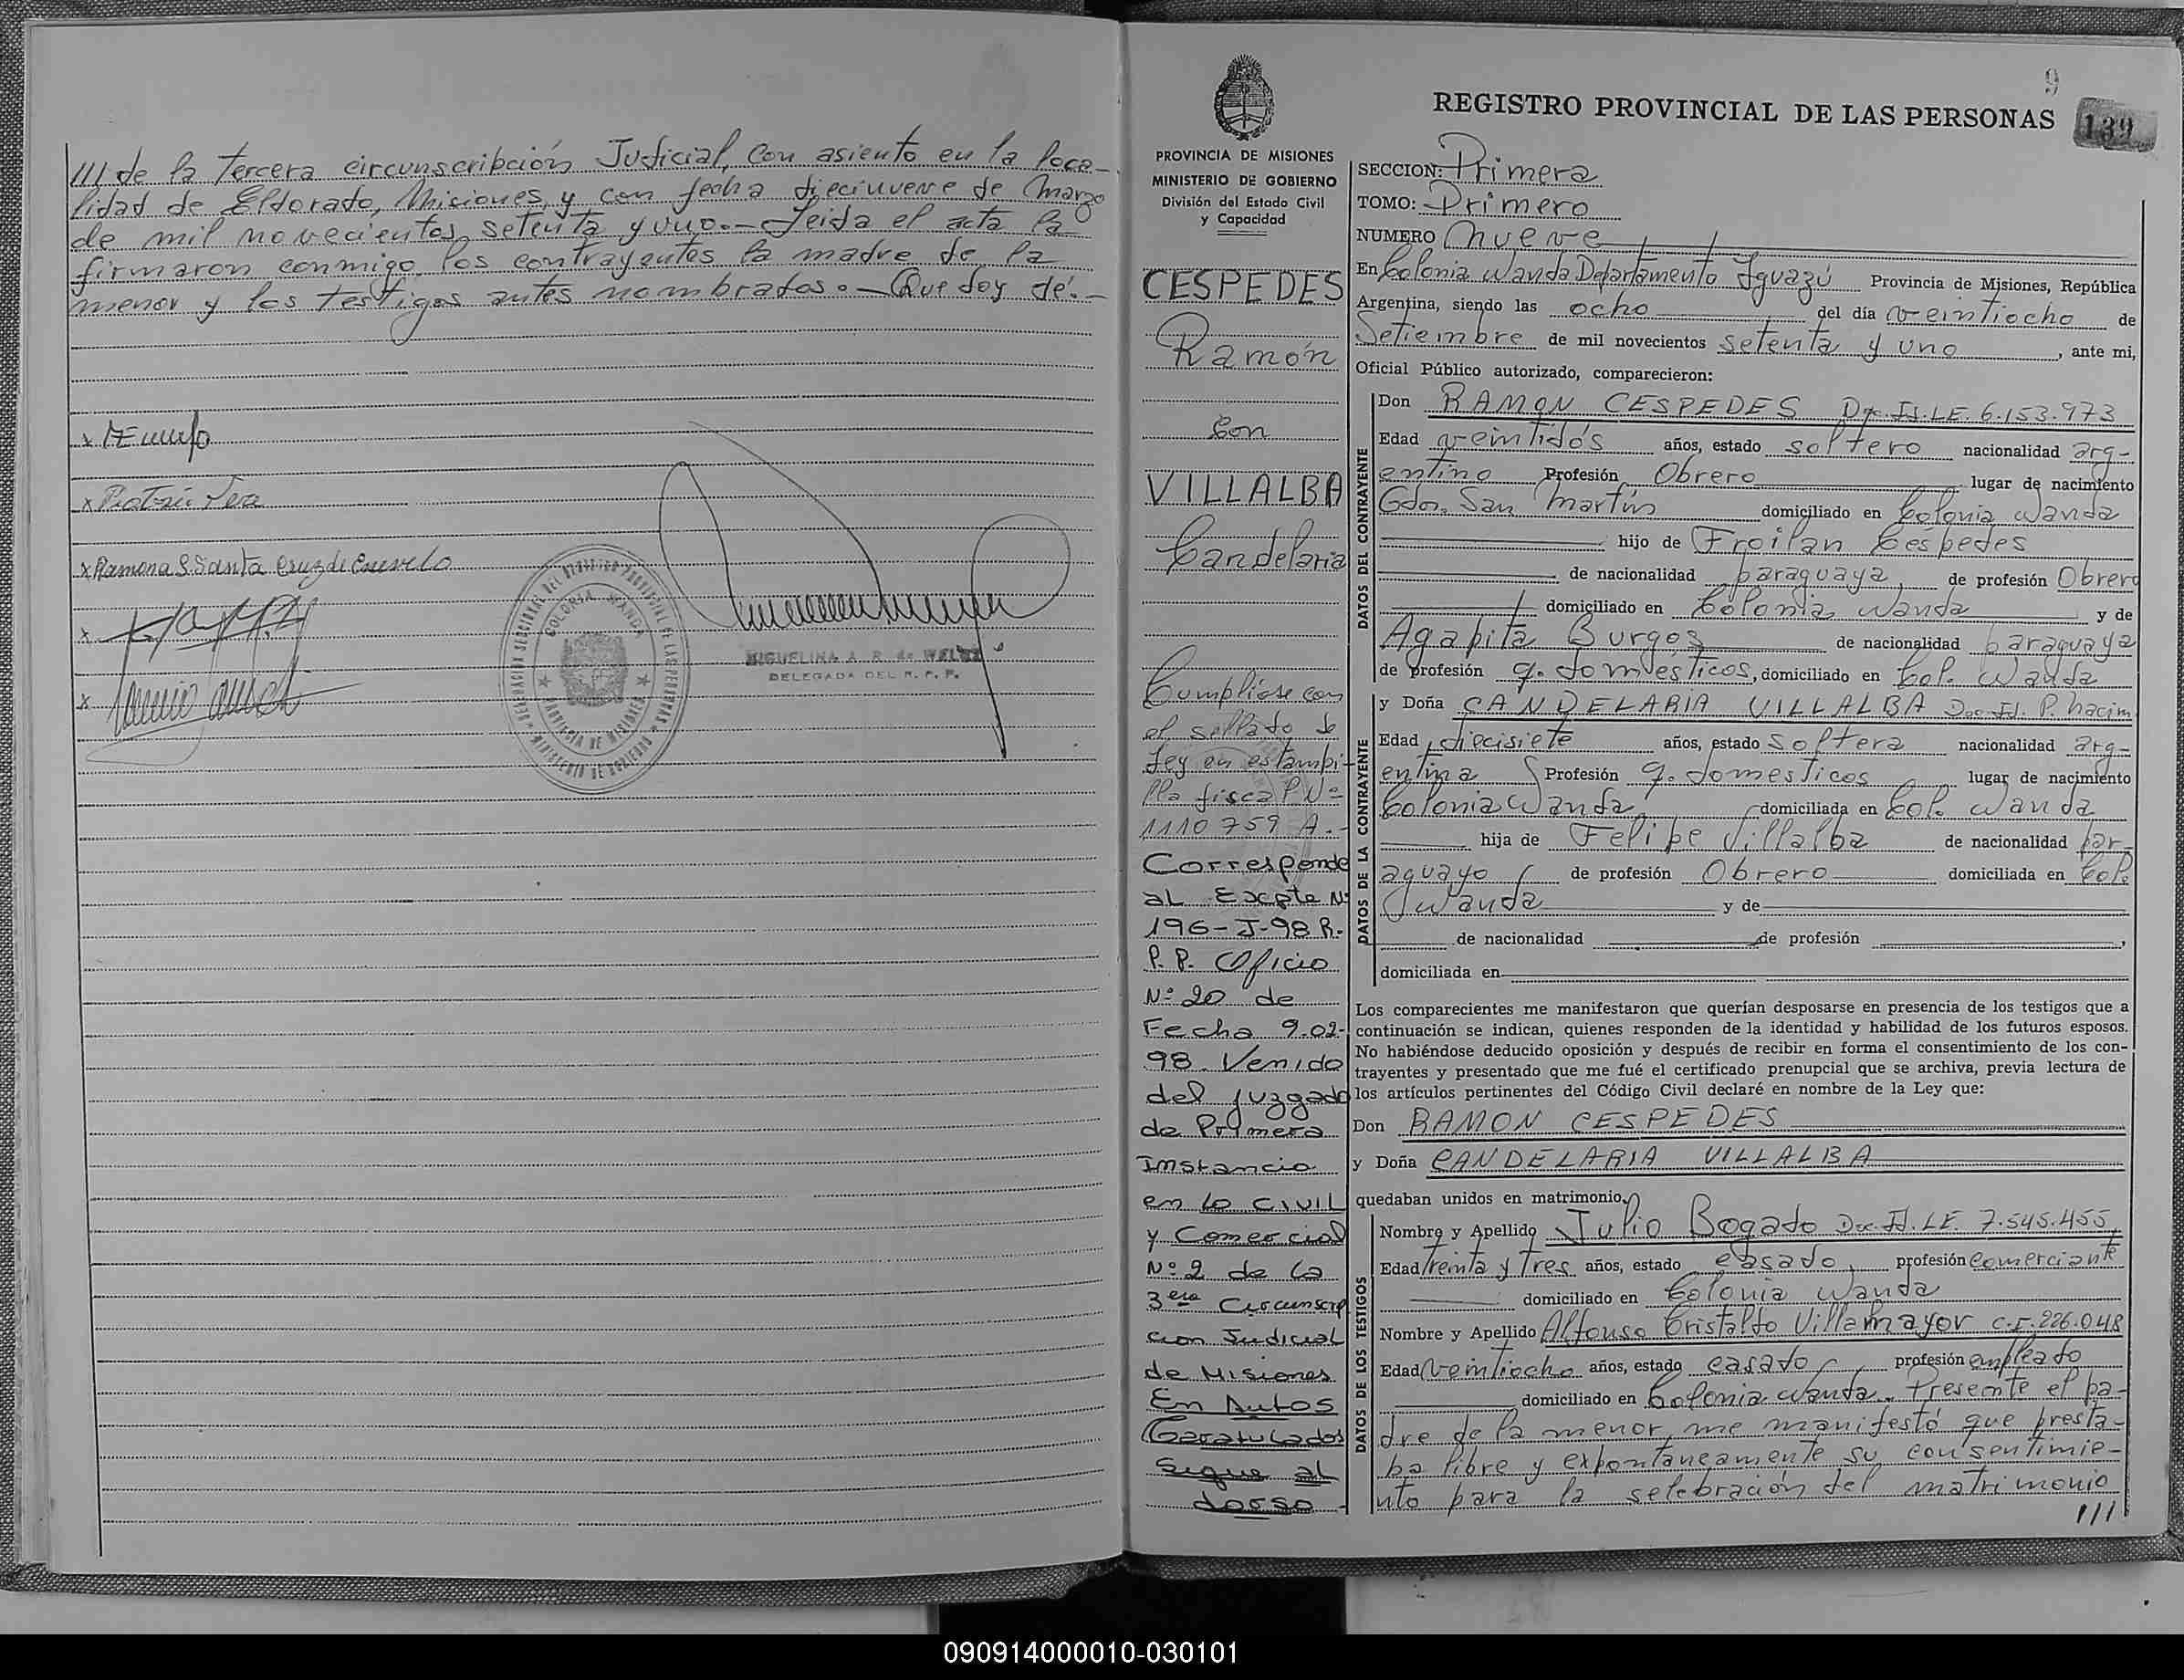 /// de la tercera circunscripción Judicial, con asiento en la loca-
lidad de Eldorado, Misiones, y con fecha diecinueve de Marzo
de mil novecientos setenta y uno.- Leída el acta la
firmaron conmigo los contrayentes la madre de la
menor y los testigos antes nombrados.- Que doy fé.-
x
x
x Ramona S. Santa Cruz de
x
x
COLONIA WANDA
MIGUELINA A. R. de
DELEGADA DEL R. P. P.
9
REGISTRO PROVINCIAL DE LAS PERSONAS
139
PROVINCIA DE MISIONES
MINISTERIO DE GOBIERNO
División del Estado Civil
y Capacidad
CESPEDES
Ramón
Con
VILLALBA
Candelaria
Cumpliose con
el sellado de
Ley en estampi-
lla fiscal Nº
1110759 A.-
Corresponde
al Expte Nº
196-J-98 R.
P.P. Oficio
Nº 20 de
Fecha 9.02-
98. Venido
del Juzgado
de Primera
Instancia
en lo Civil
y Comercial
Nº 2 de la
3era Circunscrip
cion Judicial
de Misiones
En Autos
Caratulados
Sigue al
dorso
SECCION: Primera
TOMO: Primero
NUMERO Nueve
En Colonia Wanda Departamento Iguazú Provincia de Misiones, República
Argentina, siendo las ocho del día veintiocho de
Setiembre de mil novecientos setenta y uno, ante mi,
Oficial Público autorizado, comparecieron:
DATOS DEL CONTRAYENTE
Don RAMON CESPEDES Doc. Id. LE. 6.153.973
Edad veintidós años, estado soltero nacionalidad arg-
entino Profesión Obrero lugar de nacimiento
Gdor. San Martín domiciliado en Colonia Wanda
hijo de Froilan Céspedes
de nacionalidad paraguaya, de profesión Obrero
domiciliado en Colonia Wanda y de
Agapita Burgos de nacionalidad paraguaya
de profesión q. domésticos, domiciliado en Col. Wanda
DATOS DE LA CONTRAYENTE
y Doña CANDELARIA VILLALBA Doc. Id. P. Nacim.
Edad diecisiete años, estado soltera nacionalidad arg-
entina Profesión q. domesticos lugar de nacimiento
Colonia Wanda domiciliada en Col. Wanda
hija de Felipe Villalba de nacionalidad par-
aguayo de profesión Obrero domiciliada en Col.
Wanda y de
de nacionalidad de profesión ,
domiciliada en
Los comparecientes me manifestaron que querían desposarse en presencia de los testigos que a
continuación se indican, quienes responden de la identidad y habilidad de los futuros esposos.
No habiéndose deducido oposición y después de recibir en forma el consentimiento de los con-
trayentes y presentado que me fué el certificado prenupcial que se archiva, previa lectura de
los artículos pertinentes del Código Civil declaré en nombre de la Ley que:
Don RAMON CESPEDES
y Doña CANDELARIA VILLALBA
quedaban unidos en matrimonio.
DATOS DE LOS TESTIGOS
Nombre y Apellido Julio Bogado Doc. Id. LE. 7.545.455
Edad treinta y tres años, estado casado, profesión comerciante
domiciliado en Colonia Wanda
Nombre y Apellido Alfonso Cristaldo Villamayor C.I. 226.048
Edad veintiocho años, estado casado, profesión empleado
domiciliado en Colonia Wanda. Presente el pa-
dre de la menor, me manifestó que presta-
ba libre y expontaneamente su consentimie-
nto para la selebración del matrimonio
///
090914000010-030101